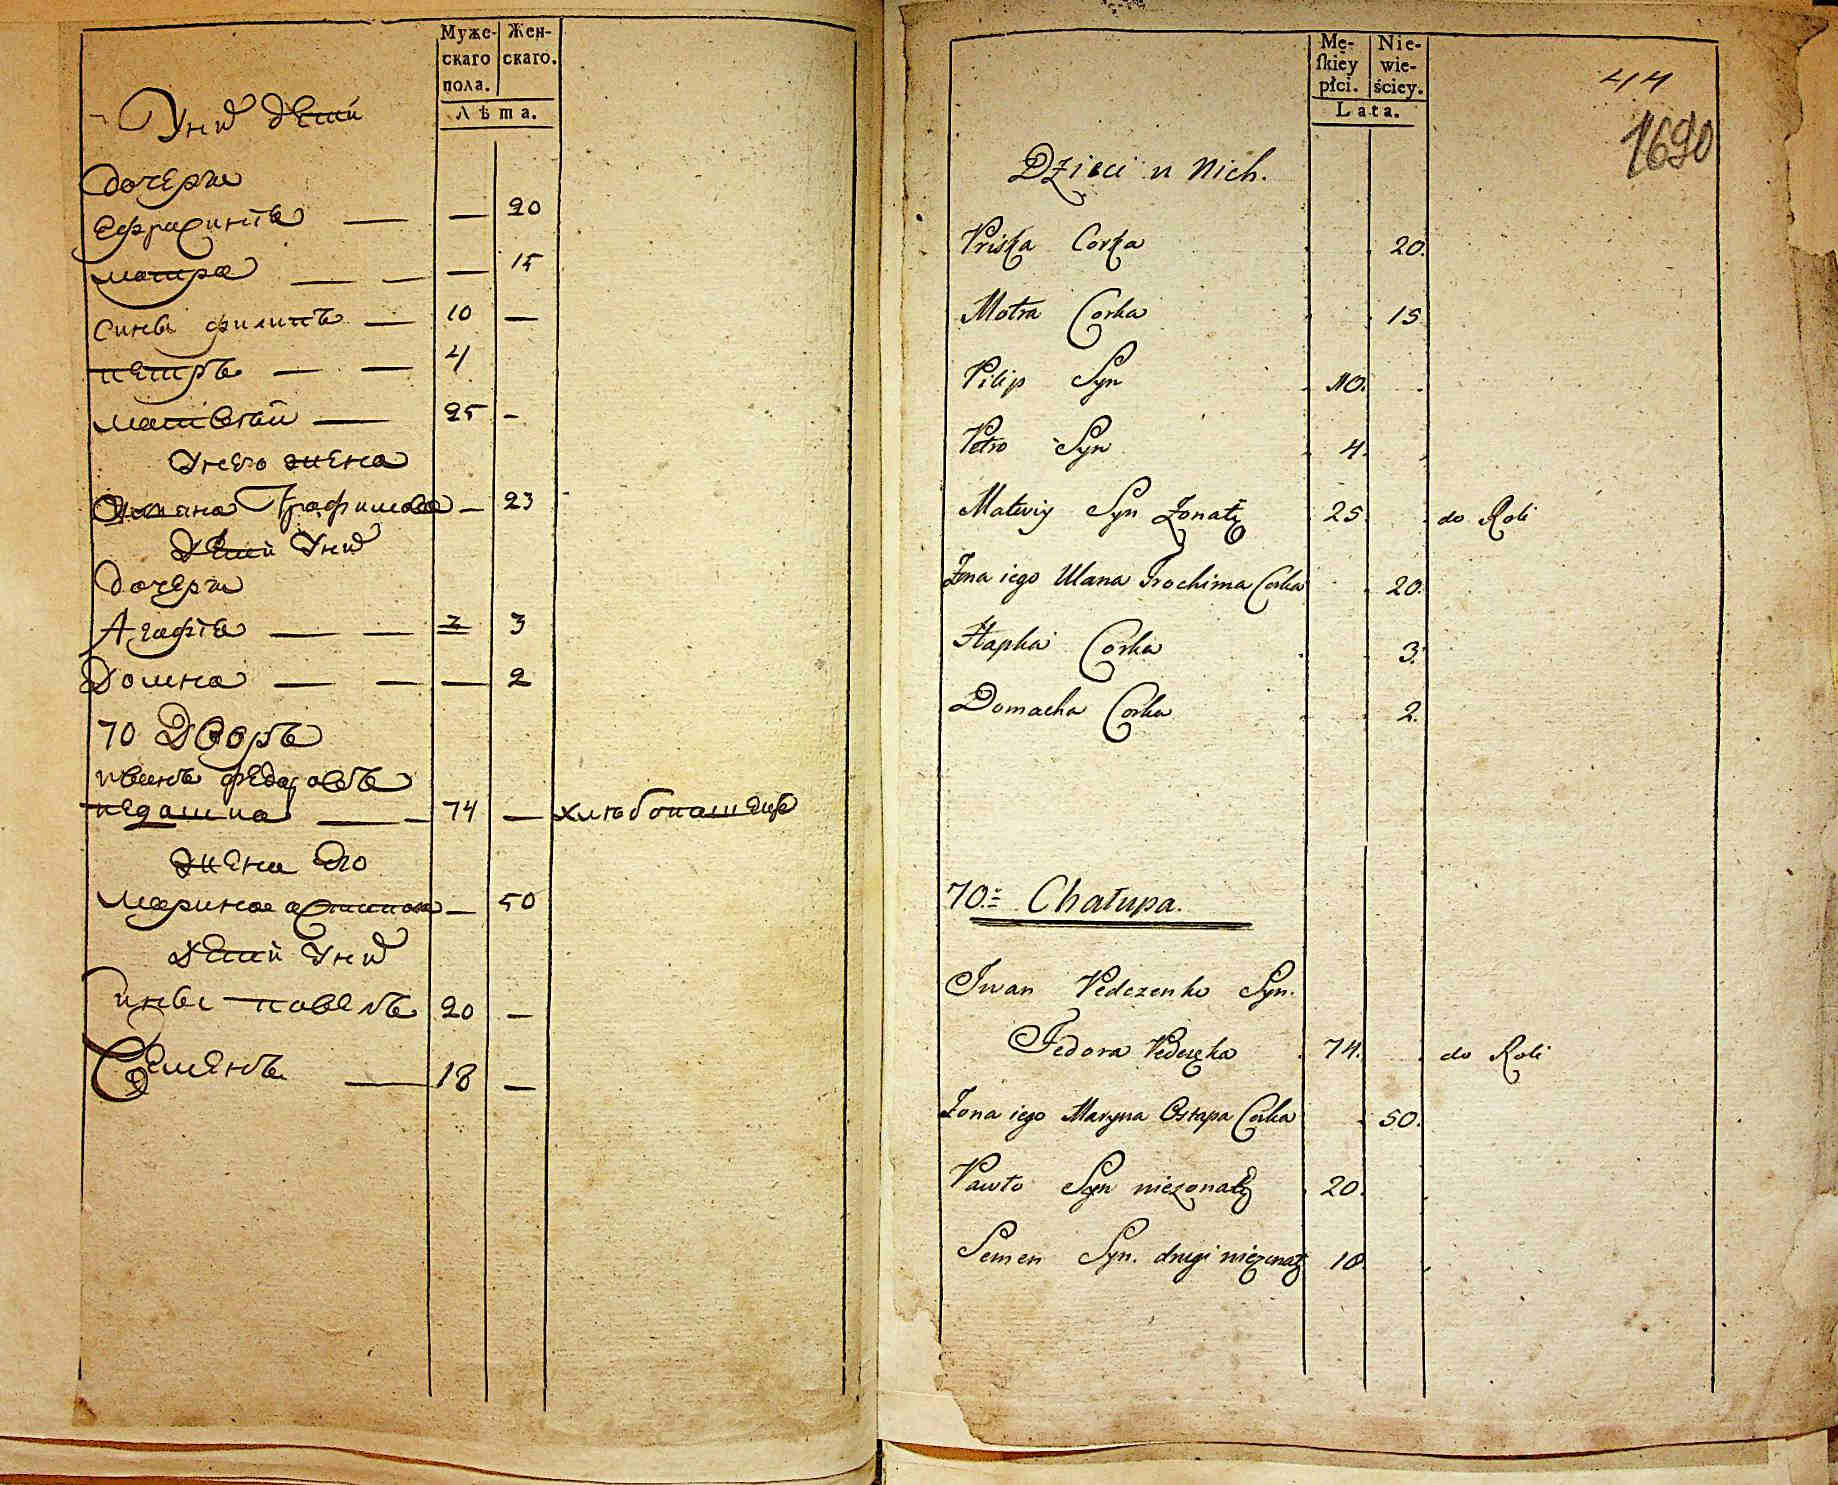 Муже-
скаго
пола.
Жен-
скаго.
Лѣта.
У них дети
дочери
Ефрасинъя — — 20
мотра — — — 15
Сины филипъ — 10 —
петръ — — 4 —
матвѣй — 25 -
У него жена
Уляна Трафимова — 23
дети У них
дочери
Агафъя — — 3
Домна — — — 2
70 Дворъ
иванъ федоровъ
— 74 — хлѣбопашецъ
жена Его
Марина — 50
дети У них
Сины павелъ 20 —
Семенъ — 18 —
Mę-
ſkiéy
płci.
Nie-
wie-
ściey.
Lata.
44
1690
Dzieci u Nich.
Priska Corka 20.
Motra Corka 15
Pilip Syn 10.
Petro Syn 4.
Matwiy Syn Żonaty 25. do Roli
Żona iego Ulana Trochima Corka 20.
Hapka Corka 3.
Domacha Corka 2.
70.a Chałupa.
Iwan Pedczenko Syn.
Fedora 74. do Roli
Żona iego Maryna Ostapa Corka 50.
Pawło Syn nieżonaty 20.
Semen Syn. drugi nieżonaty 18